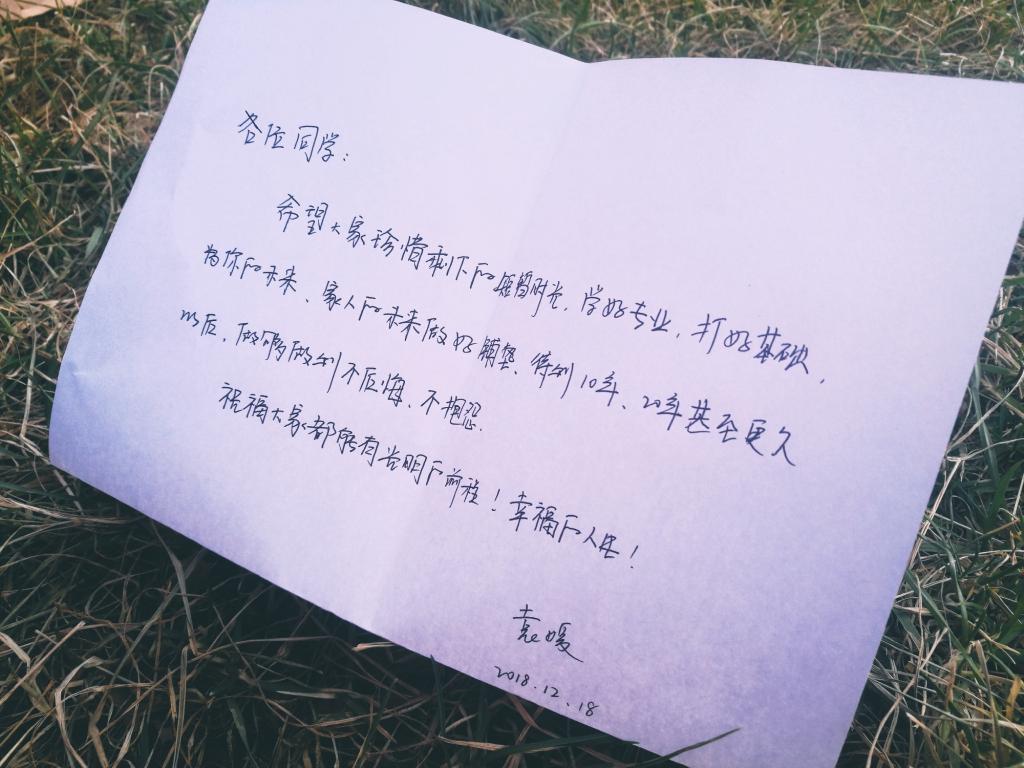 各位同学:
希望大家珍惜剩下的短暂时光,学好专业,打好基础,
为你的未来、家人的未来做好铺垫,得到10年、20年甚至更久
以后,能够做到不后悔、不抱怨.
祝福大家都能有光明的前程!幸福的人生!
袁媛
2018.12.18